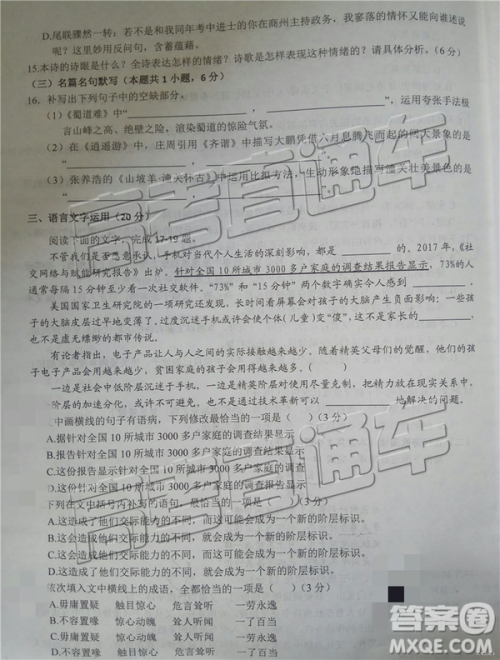 D.尾联骤然一转:若不是和我同年考中进士的你在商州主持政务,我寥落的情怀又能向谁述说
呢?这里妙用反问句,含蓄蕴藉。
15.本诗的诗眼是什么?全诗表达怎样的情绪?诗歌是怎样表现这种情绪的?请具体分析。(6分)
(三)名篇名句默写(本题共1小题,6分)
16.补写出下列句子中的空缺部分。
(1)《蜀道难》中“                ,                ”,运用夸张手法极
言山峰之高、绝壁之险,渲染蜀道的惊险气氛。
(2)在《逍遥游》中,庄周引用《齐谐》中的话描写大鹏凭借六月息腾飞而起的何人景象的是
“                ,                ”
(3)张养浩的《山坡羊·潼关怀古》中运用比拟方法,生动形象地描写潼关壮美景色的是
“                ,                ”
三、语言文字运用(20分)
阅读下面的文字,完成17-19题。
不管我们是否愿意承认,手机对当代个人生活的深刻影响,都是        的。2017年,《社
交网络与赋能研究报告》出炉。针对全国10所城市3000多户家庭的调查结果报告显示,73%的人
通常每隔15分钟至少看一次社交软件。“73%”和“15分钟”两个数字确实令人感到        。
美国国家卫生研究院的一项研究还发现,长时间看屏幕会对孩子的大脑产生负面影响:一些孩
子的大脑皮层过早地变薄了。过度沉迷手机或许会使个体(儿童)变“傻”,这不是家长的        ,
也不是虚无缥缈的都市传说。
有论者指出,电子产品让人与人之间的实际接触越来越少。随着精英父母们的觉醒,他们的孩
子电子产品会用得越来越少,贫困家庭的孩子会用得越来越多。(    )
一边是社会中低阶层沉迷于手机,一边是精英阶层对使用尽量克制,把精力放在现实世界中,
阶层的加速分化,或许不可避免,也不是通过技术革新可以        他解决的问题。
中画横线的句子有语病,下列修改最恰当的一项是(    )(3分)
A.据针对全国10所城市3000多户家庭的调查结果显示
B.这份针对全国10所城市3000多户家庭的调查结果显示
C.这份报告显示针对全国10所城市3000多户家庭的调查结果
D.这份针对全国10所城市3000多户家庭的调查报告显示
下列在文中括号内补写的语句,最恰当的一项是(    )(3分)
A.这造成了他们交际能力的不同,而这就会成为一个新的阶层标识。
B.这造成他们交际能力的不同,这可能会成为一个新的阶层标识。
C.这造成了他们交际能力的不同,这可能会成为一个新的阶层标识。
D.这造成了他们交际能力的不同,而这可能会成为一个新的阶层标识。
依次填入文中横线上的成语,全都恰当的一项是(    )(3分)
A.毋庸置疑  触目惊心  危言耸听  一劳永逸
B.不容置疑  惊心动魄  耸人听闻  一劳永逸
C.毋庸置疑  惊心动魄  耸人听闻  一了百当
D.不容置疑  触目惊心  危言耸听  一了百当
高考直通车
高考直通车
答案圈
MXQE.COM